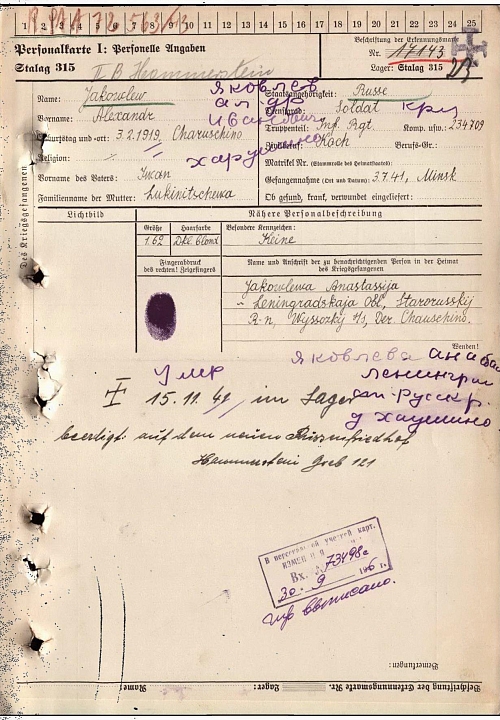 1 2 3 4 5 6 7 8 9 10 11 12 13 14 15 16 17 18 19 20 21 22 23 24 25
Personalkarte I: Personelle Angaben
Stalag 315
II B Hammerstein
Beschriftung der Erkennungsmarke
Nr. 17143
Lager: Stalag 315
Des Kriegsgefangenen
Name: Jakowlew
Яковлев
Vorname: Alexandr
Ал-др
Иванович
Geburtstag und -ort: 3.2.1919, Charuschino
Religion:
Vorname des Vaters: Iwan
Familienname der Mutter: Lukinitschewa
Staatsangehörigkeit: Russe
Dienstgrad: Soldat
Truppenteil: Inf. Rgt. Komp. usw. 234709
Zivilberuf: Koch Berufs-Gr.:
Matrikel Nr. (Stammrolle des Heimatstaates):
Gefangennahme (Ort und Datum): 3.7.41, Minsk
Ob gesund, krank, verwundet eingeliefert:
Lichtbild
Nähere Personalbeschreibung
Größe Haarfarbe Besondere Kennzeichen:
1.62 Dkl. blond Keine
Fingerabdruck
des rechten! Zeigefingers
Name und Anschrift der zu benachrichtigenden Person in der Heimat
des Kriegsgefangenen
Jakowlewa Anastassija
Leningradskaja Obl., Starorusskij
R-n, Wyssozkij s/s, Der. Chauschino.
Wenden!
Яковлева
Умер
Ленинград
15.11.41 im Lager
beerdigt auf dem neuen Russenfriedhof
Hammerstein Grab 121
В персональной учетной карт.
Вх. 73498с
30. 9 196 г.
Bemerkungen:
Beschriftung der Erkennungsmarke Nr. Lager: Name: